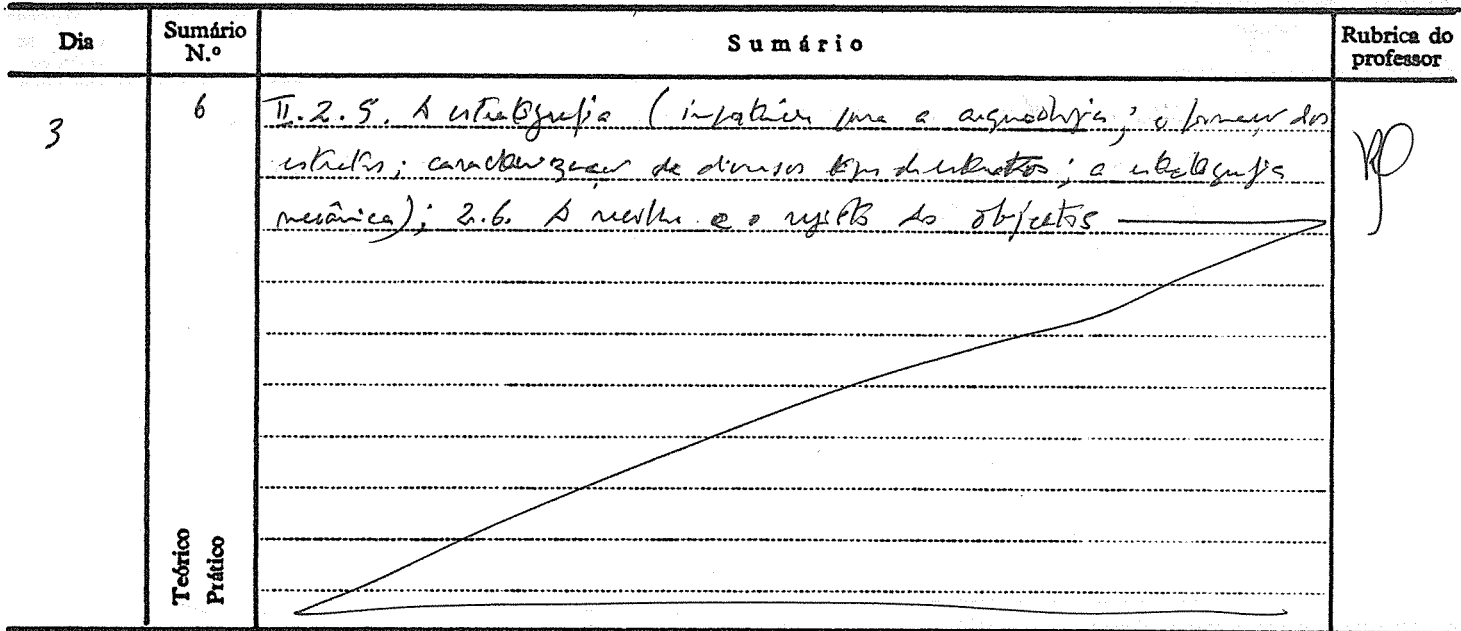 Dia
Sumário N.º
Sumário
Rubrica do professor
3
6
II.2.5. A estratigrafia (importância para a arqueologia; a formação dos
estratos; caracterização de diversos tipos de estratos; a estratigrafia
mecânica); 2.6. A recolha e o registo dos objectos
Teórico
Prático